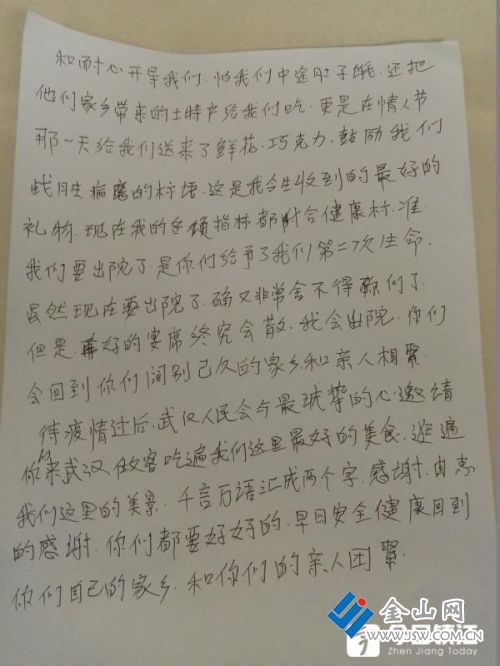 和耐心开导我们.怕我们中途肚子饿.还把
他们家乡带来的土特产给我们吃.更是在情人节
那一天给我们送来了鲜花.巧克力.鼓励我们
战胜病魔的标语.这是我今生收到的最好的
礼物.现在我的各项指标都附合健康标.准.
我们要出院了.是你们给予了我们第二次生命.
虽然现在要出院了.确又非常舍不得你们了.
但是.再好的宴席终究会散.我会出院.你们
会回到你们间别已久的家乡和亲人相聚.
待疫情过后.武汉人民会与最诚挚的心.邀请
你来武汉做客吃遍我们这里最好的美食.逛遍
我们这里的美景.千言万语汇成两个字.感谢.由衷
的感谢.你们都要好好的.早日安全健康回到
你们自己的家乡.和你们的亲人团聚.
金山网
WWW.JSW.COM.CN
今日镇江
Zhen Jiang Today